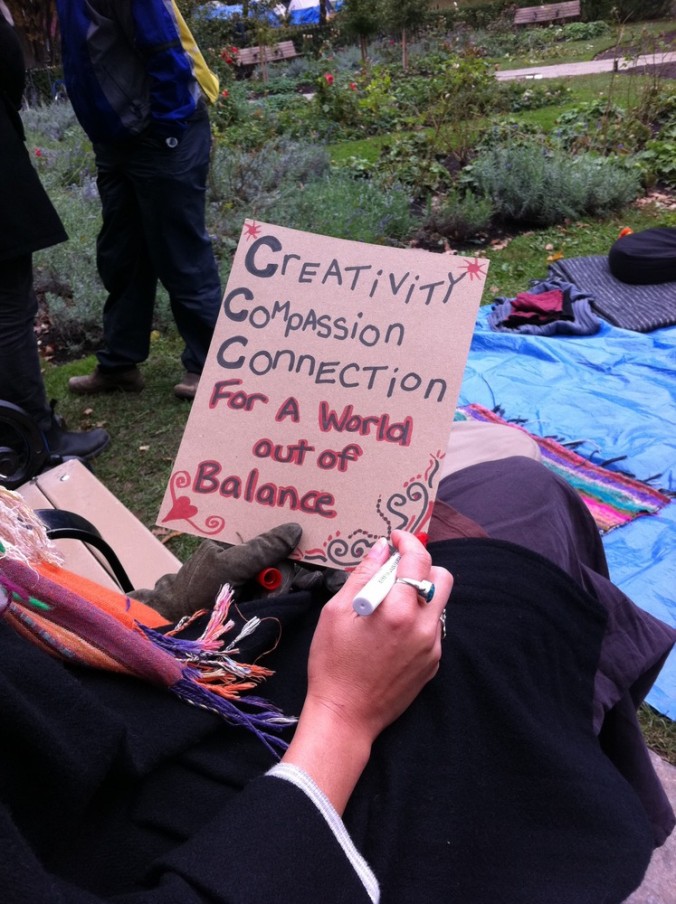 Creativity
Compassion
Connection
For A World
out of
Balance